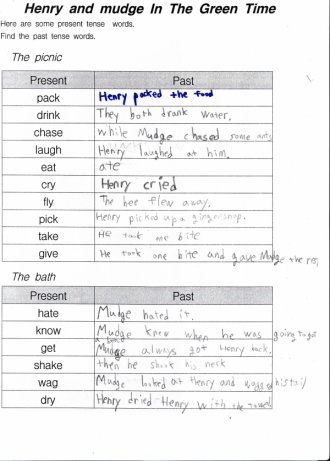 Henry and mudge In The Green Time
Here are some present tense words.
Find the past tense words.
The picnic
Present Past
pack Henry packed the food
drink They both drank water.
chase while Mudge chased some ants
laugh Henry laughed at him.
eat ate
cry Henry cried
fly The bee flew away.
pick Henry picked up a gingersnap.
take He took one bite
give He took one bite and gave Mudge the
The bath
Present Past
hate Mudge hated it.
know Mudge knew when he was going to get
get Mudge always got Henry back.
shake then he shook his neck
wag Mudge looked at Henry and wagged his tail
dry Henry dried Henry with the towel